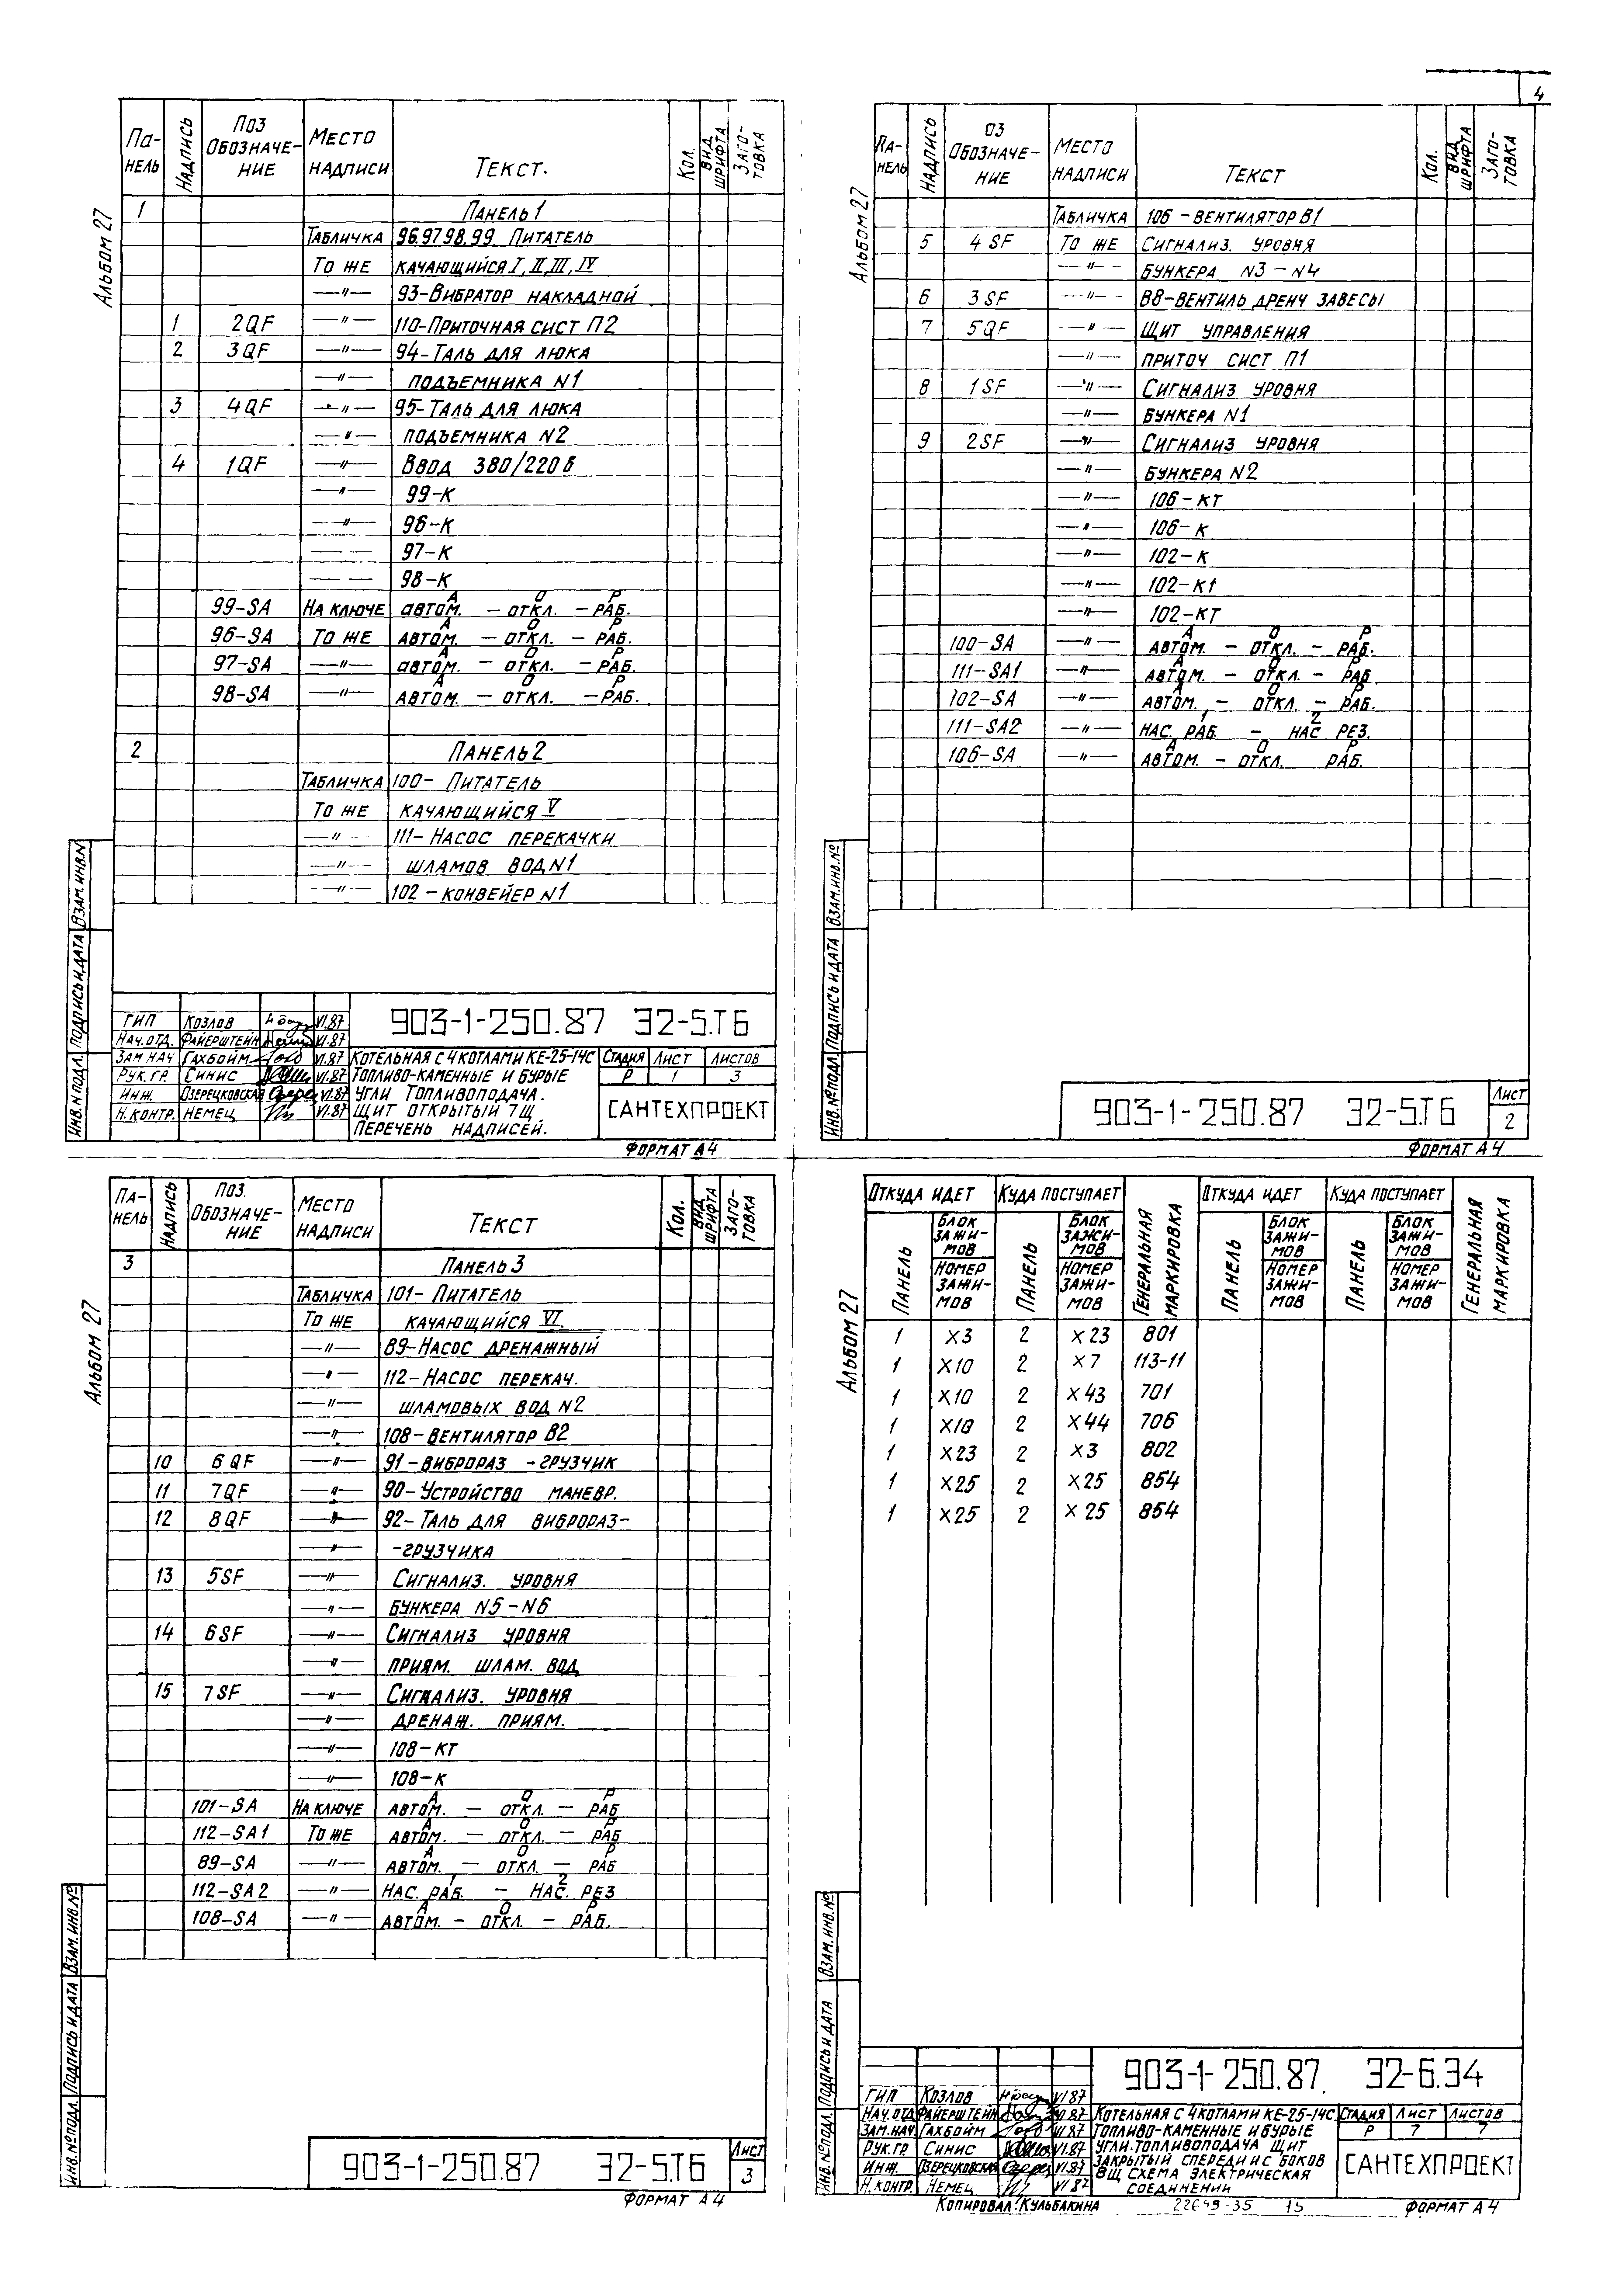 4
Альбом 27
Панель Надпись Поз Обозначение Место надписи Текст. Кол. Вид шрифта Заготовка
1 Панель 1
Табличка 96.97 98.99 Питатель
То же качающийся I, II, III, IV
—"— 93-Вибратор накладной
1 2QF —"— 110-Приточная сист П2
2 3QF —"— 94-Таль для люка
—"— подъемника N1
3 4QF —"— 95-Таль для люка
—"— подъемника N2
4 1QF —"— Ввод 380/220в
—"— 99-К
—"— 96-К
— — 97-К
— — 98-К
А О Р
99-SA На ключе автом. — откл. — раб.
А О Р
96-SA То же автом. — откл. — раб.
А О Р
97-SA —"— автом. — откл. — раб.
А О Р
98-SA —"— автом. — откл. — раб.
2 Панель 2
Табличка 100- Питатель
То же качающийся V
—"— 111- Насос перекачки
—"— шламов вод N1
—"— 102 - конвейер N1
Взам. инв. N
Подпись и дата
Инв. N подл.
903-1-250.87 Э2-5.ТБ
ГИП Козлов VI.87
Нач. отд. Файерштейн VI.87
Зам нач Гахбойм VI.87
Рук. гр. Синис VI.87
Инж. Озерецковская VI.87
Н. контр. Немец VI.87
Котельная с 4 котлами КЕ-25-14С
Топливо-каменные и бурые
угли Топливоподача.
Щит открытый 7Щ
Перечень надписей.
Стадия Лист Листов
Р 1 3
САНТЕХПРОЕКТ
Формат А4
Альбом 27
Панель Надпись оз Обозначение Место надписи Текст Кол. Вид шрифта Заготовка
Табличка 106 - вентилятор В1
5 4 SF То же Сигнализ. уровня
—"— бункера N3 - N4
6 3 SF —"— В8-вентиль дренч завесы
7 5QF —"— Щит управления
—"— приточ сист П1
8 1SF —"— Сигнализ уровня
—"— бункера N1
9 2SF —"— Сигнализ уровня
—"— бункера N2
—"— 106-КТ
—"— 106-К
—"— 102-К
—"— 102-К1
—"— 102-КТ
А О Р
100-SA —"— автом. — откл. — раб.
А О Р
111-SA1 —"— автом. — откл. — раб.
А О Р
102-SA —"— автом. — откл. — раб.
1 2
111-SA2 —"— нас. раб. — нас рез.
А О Р
106-SA —"— автом. — откл. раб.
Взам. инв. №
Подпись и дата
Инв. № подл.
903-1-250.87 Э2-5.ТБ
Лист
2
Формат А4
Альбом 27
Панель Надпись Поз. Обозначение Место надписи Текст Кол. Вид шрифта Заготовка
3 Панель 3
Табличка 101- Питатель
То же качающийся VI.
—"— 89-Насос дренажный
—"— 112-Насос перекач.
—"— шламовых вод N2
—"— 108-Вентилятор В2
10 6QF —"— 91-виброраз -грузчик
11 7QF —"— 90-Устройство маневр.
12 8QF —"— 92-Таль для виброраз-
—"— -грузчика
13 5SF —"— Сигнализ. уровня
—"— бункера N5-N6
14 6SF —"— Сигнализ уровня
—"— приям. шлам. вод
15 7SF —"— Сигнализ. уровня
—"— дренаж. приям.
—"— 108-КТ
—"— 108-К
А О Р
101-SA На ключе автом. — откл. — раб
А О Р
112-SA1 То же автом. — откл. — раб
А О Р
89-SA —"— автом. — откл. — раб
1 2
112-SA2 —"— Нас. раб. — Нас. рез
А О Р
108-SA —"— автом. — откл. — раб.
Взам. инв. №
Подпись и дата
Инв. № подл.
903-1-250.87 Э2-5.ТБ
Лист
3
Формат А4
Альбом 27
Откуда идет Куда поступает Генеральная маркировка Откуда идет Куда поступает Генеральная маркировка
Панель Блок зажимов Номер зажимов Панель Блок зажимов Номер зажимов Панель Блок зажимов Номер зажимов Панель Блок зажимов Номер зажимов
1 Х3 2 Х23 801
1 Х10 2 Х7 113-11
1 Х10 2 Х43 701
1 Х10 2 Х44 706
1 Х23 2 Х3 802
1 Х25 2 Х25 854
1 Х25 2 Х25 854
Взам. инв. №
Подпись и дата
Инв. № подл.
903-1-250.87. Э2-6.Э4
ГИП Козлов VI.87
Нач. отд Файерштейн VI.87
Зам. нач. Гахбойм VI.87
Рук. гр Синис VI.87
Инж. Озерецковская VI.87
Н. контр. Немец VI 87
Котельная с 4 котлами КЕ-25-14С.
Топливо-каменные и бурые
угли. Топливоподача Щит
закрытый спереди и с боков
8Щ Схема электрическая
соединений
Стадия Лист Листов
Р 7 7
САНТЕХПРОЕКТ
Копировал: Кульбакина 22649-35 15 Формат А4